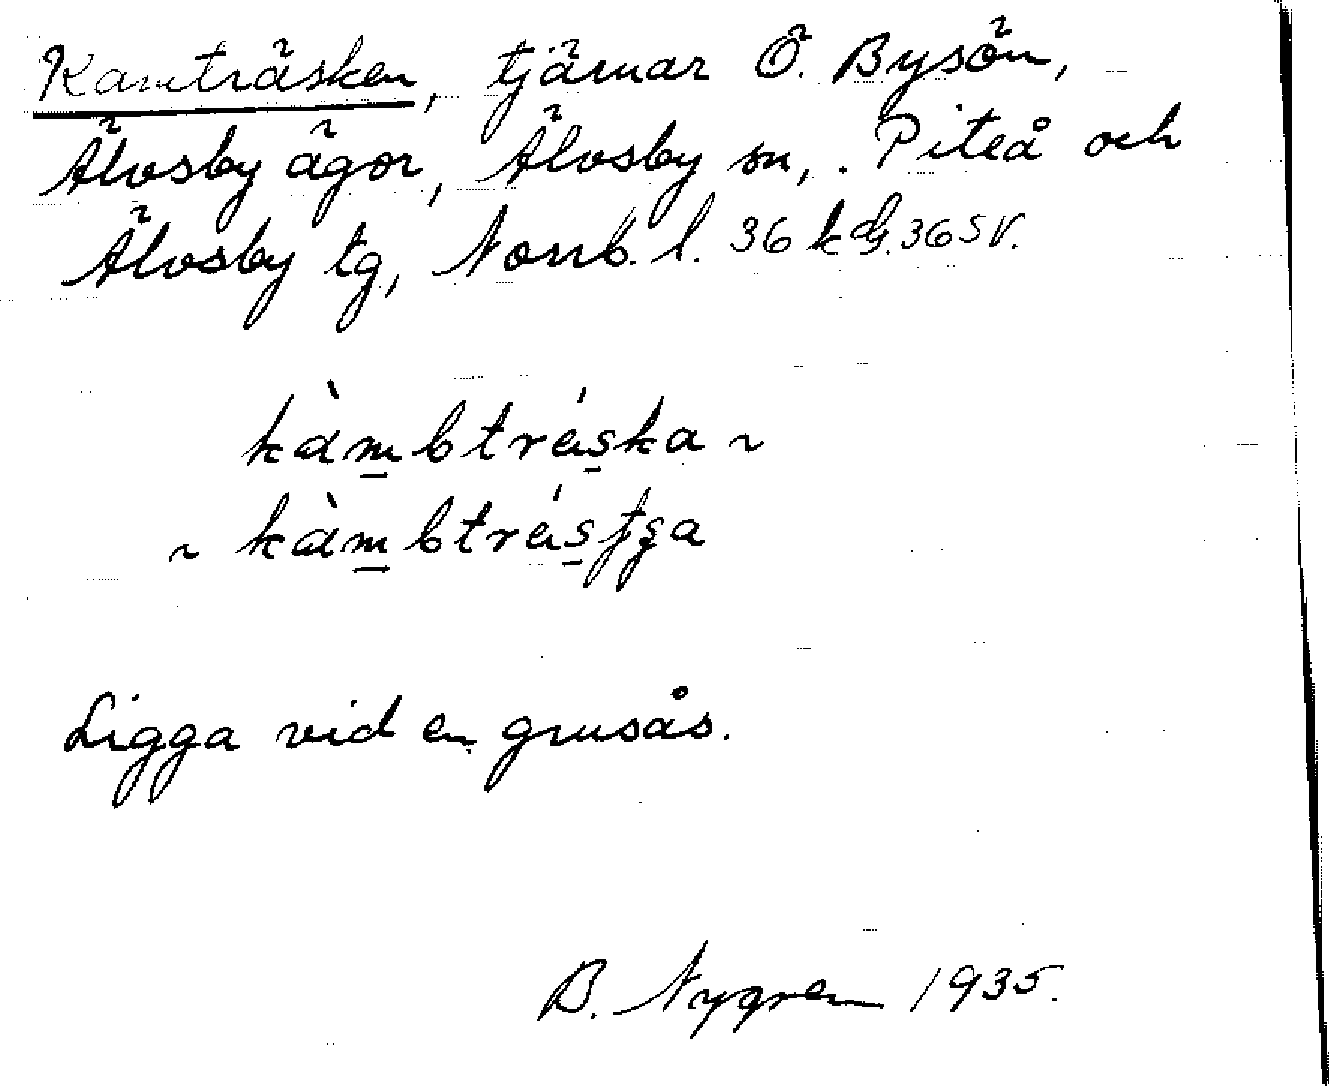 Kamträsken, tjärnar Ö. Bysön,
Älvsby ägor, Älvsby sn, Piteå och
Älvsby tg, Norrb. l. 36 k dg. 36 SV.
kàm̲btrás̲ka ~
~ kàm̲btrás̲ƭʂa
Ligga vid en grusås.
B. Nygren 1935.